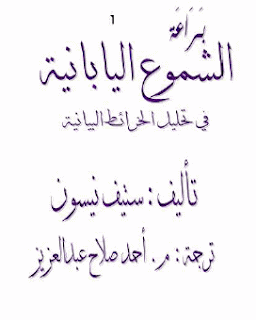 1
بَرَاعَة
الشموع اليابانية
في تحليل الخرائط البيانية
تأليف : ستيف نيسون
ترجمة : م. أحمد صلاح عبدالعزيز